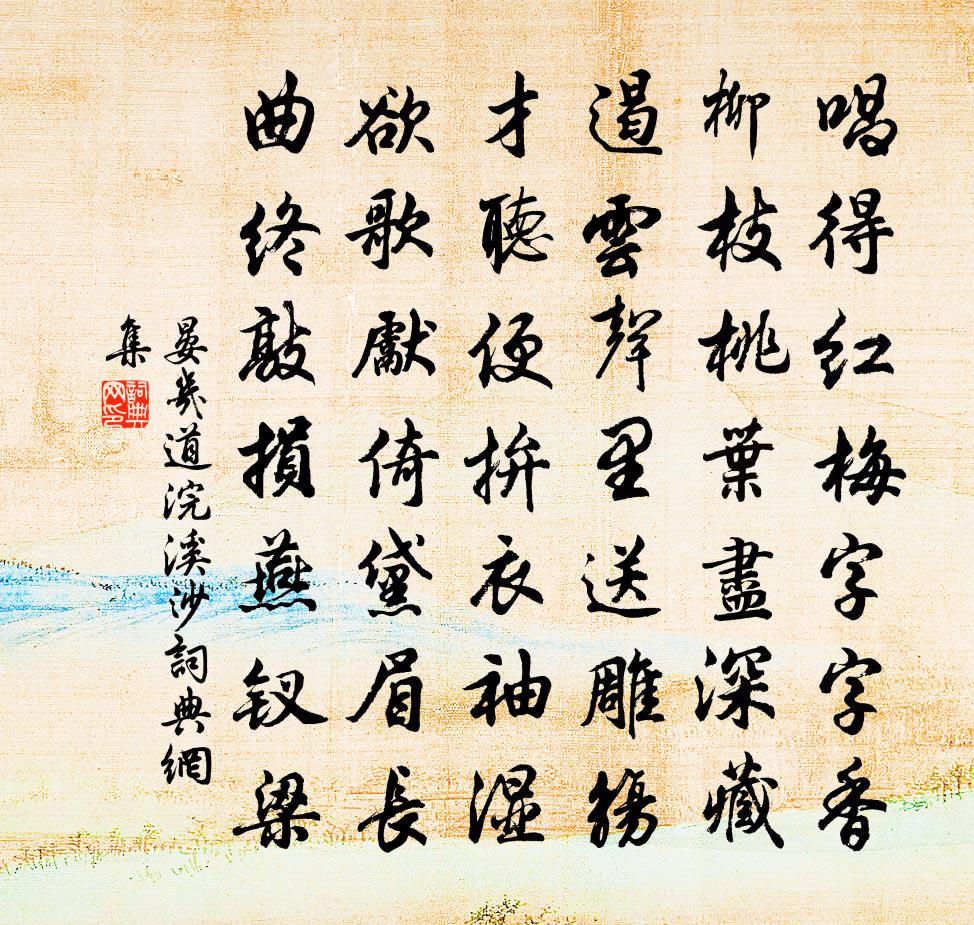 唱得红梅字字香
柳枝桃葉盡深藏
遏雲聲里送雕觴
才聽便拚衣袖湿
欲歌獻倚黛眉長
曲终敲損燕钗梁
晏幾道浣溪沙詞典網
集
詞典网印